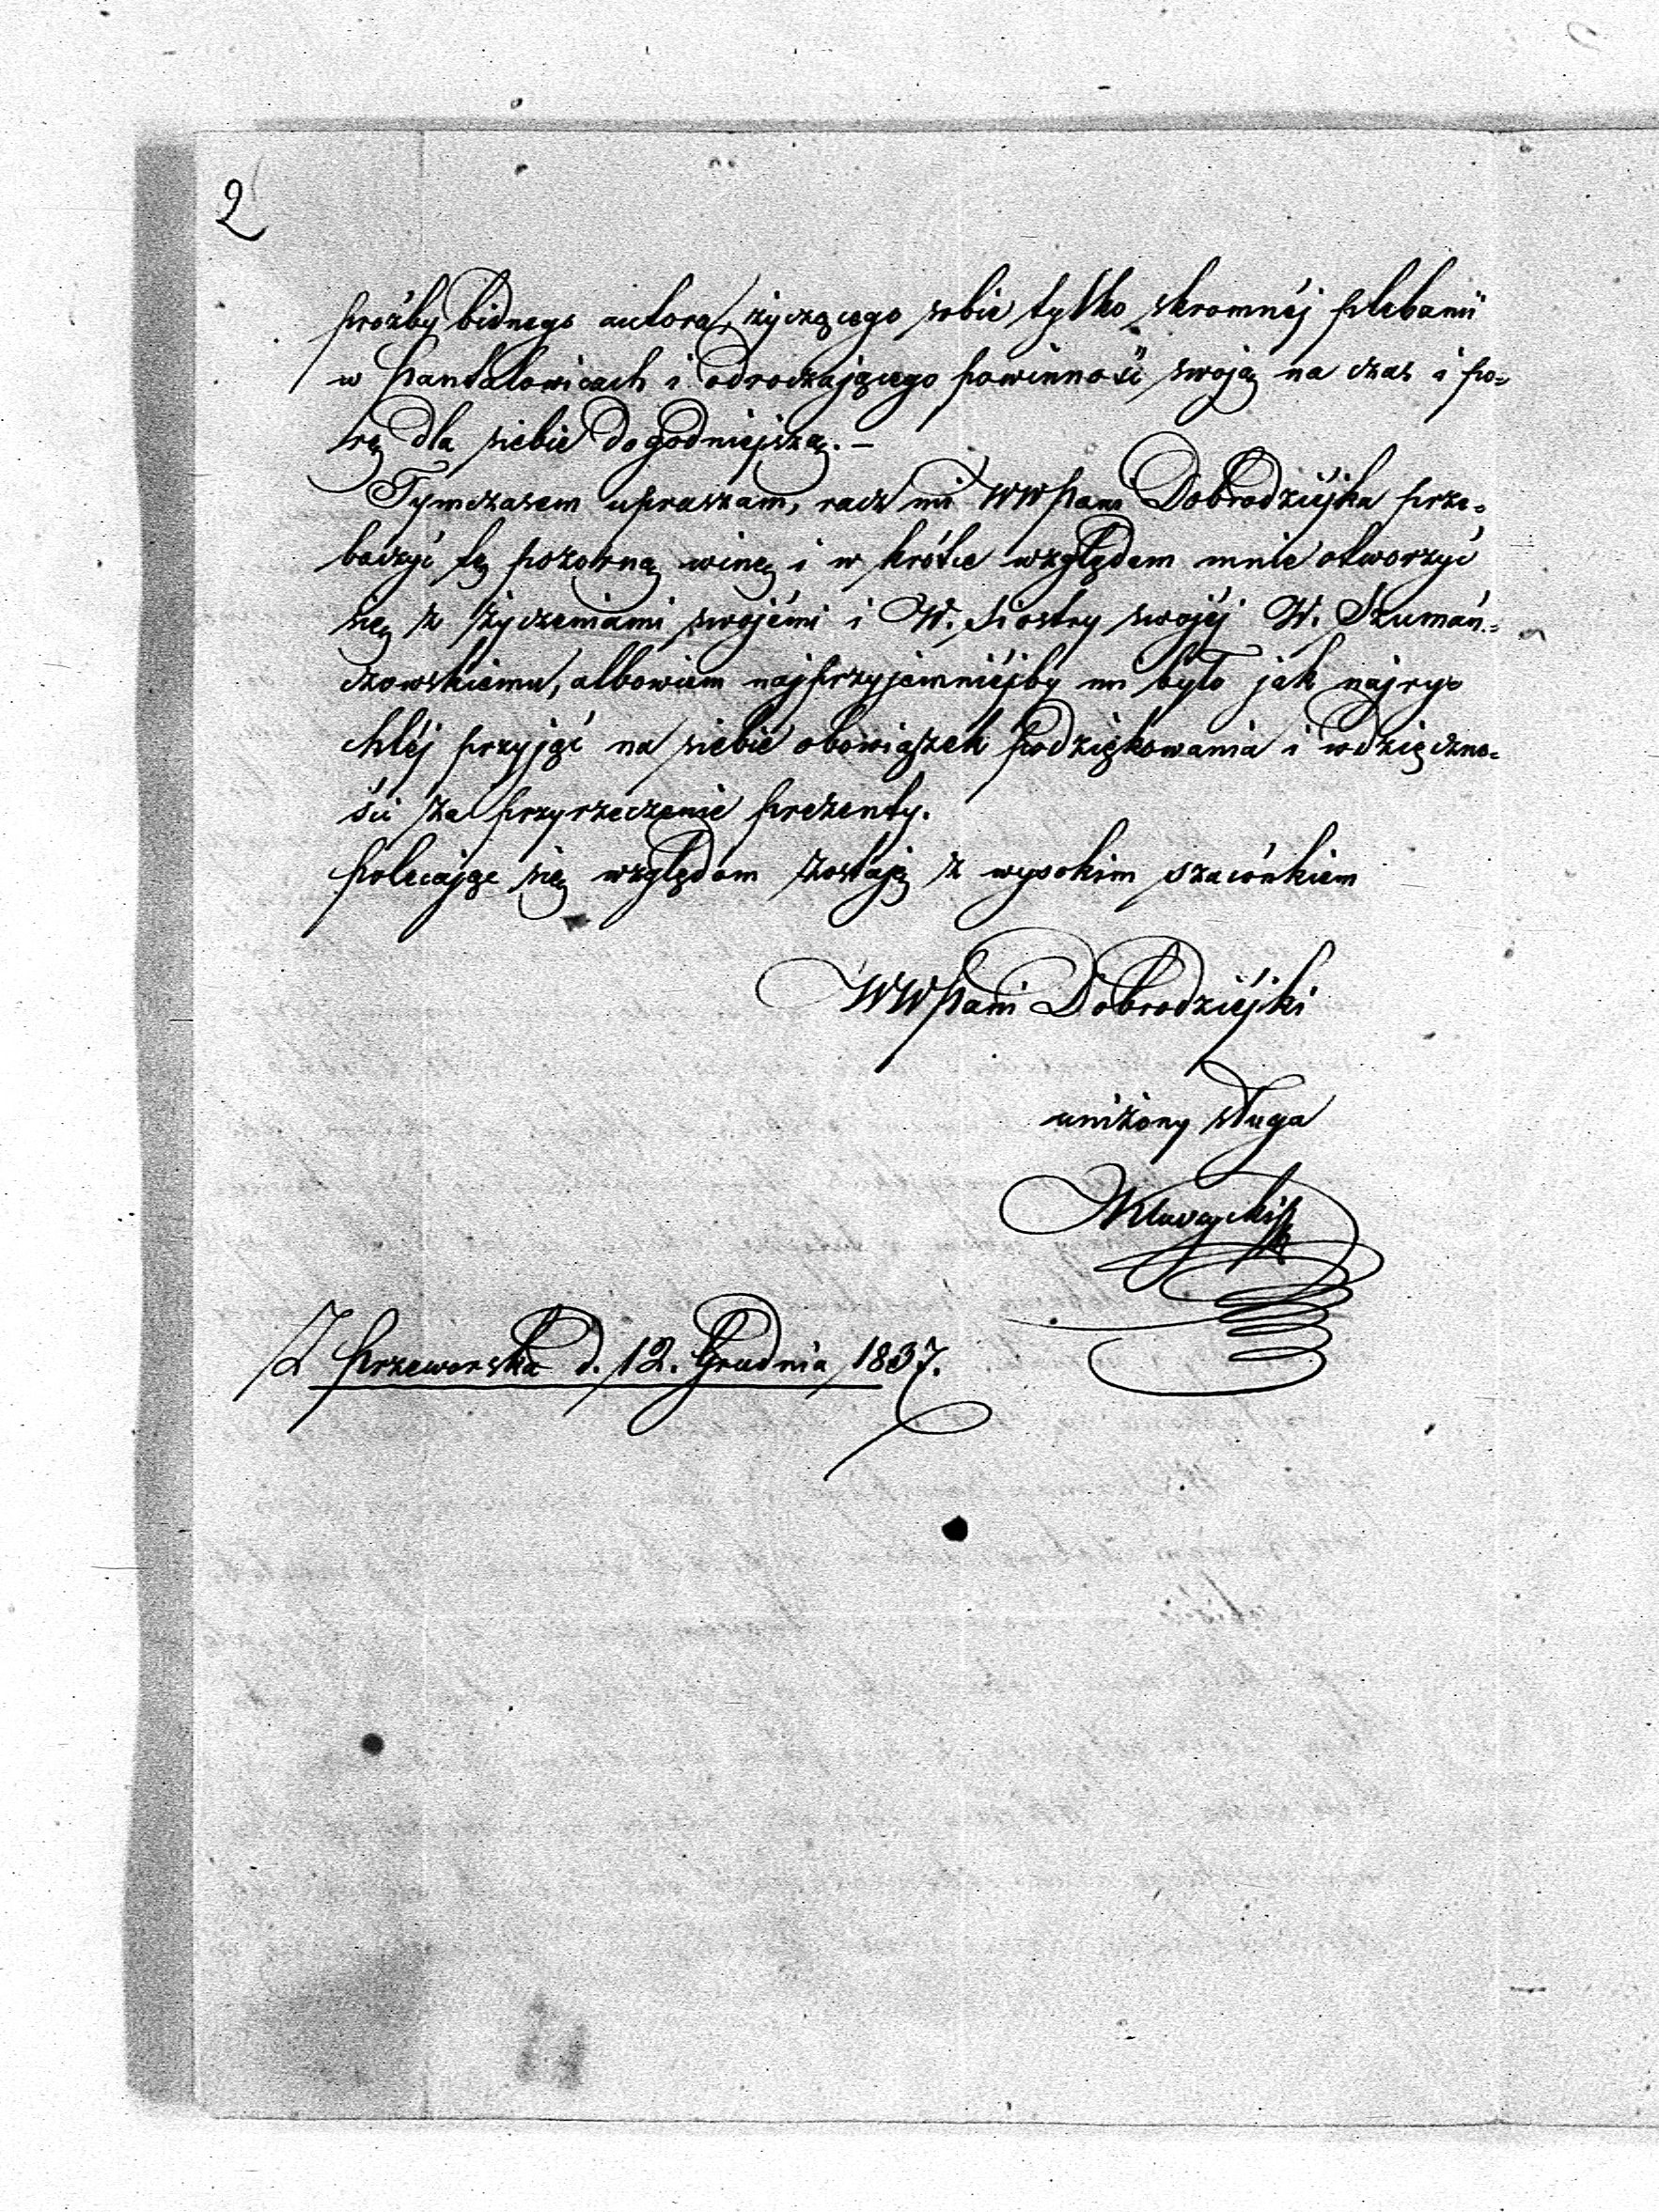 2
proźby bidnego autora, życzącego sobie tylko skromnéj plebanii
w Pantalowicach i odraczającego powinność swoją na czas i po=
rę dla siebie dogodniejszą. –
Tymczasem upraszam, racz mi WWPani Dobrodziéjka prze=
baczyć tę pozorną winę i w krótce względem mnie otworzyć
się z życzeniami swojémi i W. Siostry swojéj W. Szumań=
czowskiemu, albowiem najprzyjemniéjby mi było jak najry=
chléj przyjąć na siebie obowiązek podziękowania i wdzięczno=
ści za przyrzeczenie prezenty.
Polecając się względom zostaję z wysokim szacónkiem
WWPani Dobrodziéjki
uniżony sługa
Z Przeworska d. 12. Grudnia 1837.